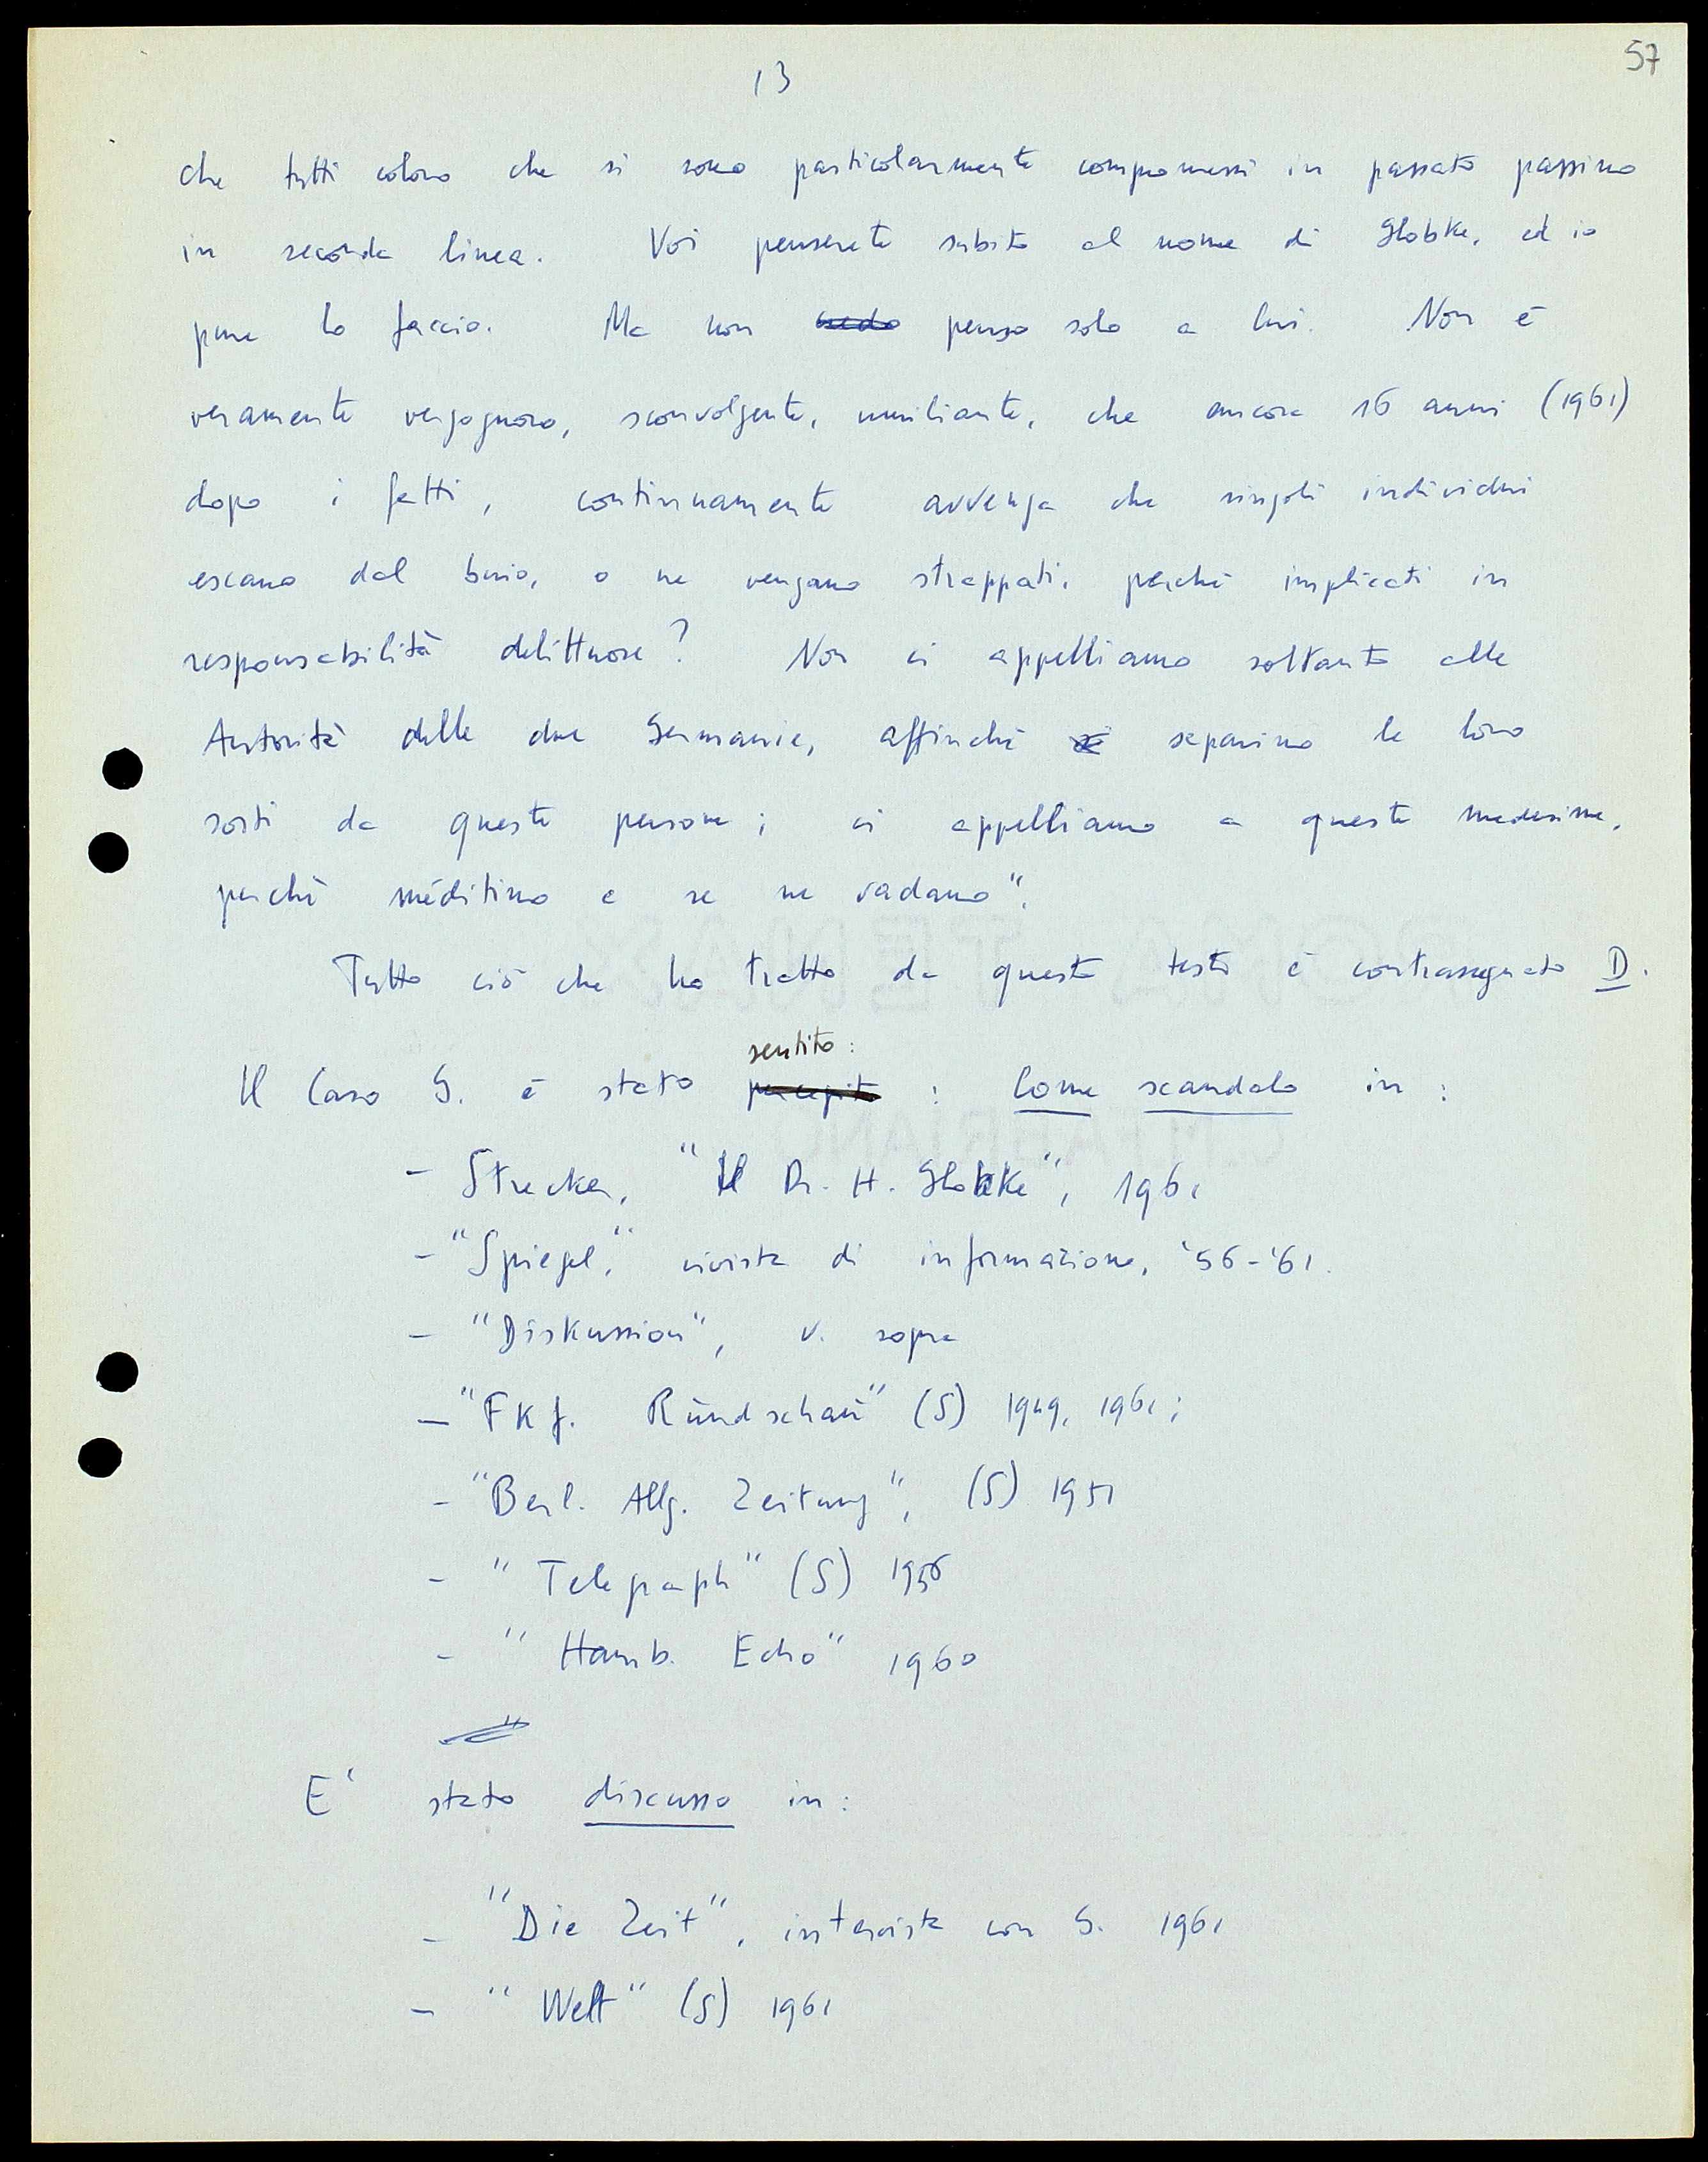 57
13
che tutti coloro che si sono particolarmente compromessi in passato passino
in seconda linea. Voi penserete subito al nome di Globke, ed io
pure lo faccio. Ma non credo penso solo a lui. Non è
veramente vergognoso, sconvolgente, umiliante, che ancora 16 anni (1961)
dopo i fatti, continuamente avvenga che singoli individui
escano dal buio, o ne vengano strappati, perché implicati in
responsabilità delittuose? Non ci appelliamo soltanto alle
Autorità delle due Germanie, affinché se separino le loro
sorti da queste persone; ci appelliamo a queste medesime,
perché mèditino e se ne vadano".
Tutto ciò che ho tratto da questo testo è contrassegnato D.
sentito:
Il Caso G. è stato percepito : Come scandalo in :
- Strecker, "Il Dr. H. Globke", 1961
- "Spiegel," rivista di informazione, '56-'61.
- "Diskussion", v. sopra
- "Fkf. Rundschau" (S) 1949, 1961;
- "Berl. Allg. Zeitung", (S) 1951
- "Telegraph" (S) 1956
- "Hamb. Echo" 1960
E' stato discusso in:
- "Die Zeit", intervista con G. 1961
- "Welt" (S) 1961
ROMA TENAX
C.M. FABRIANO